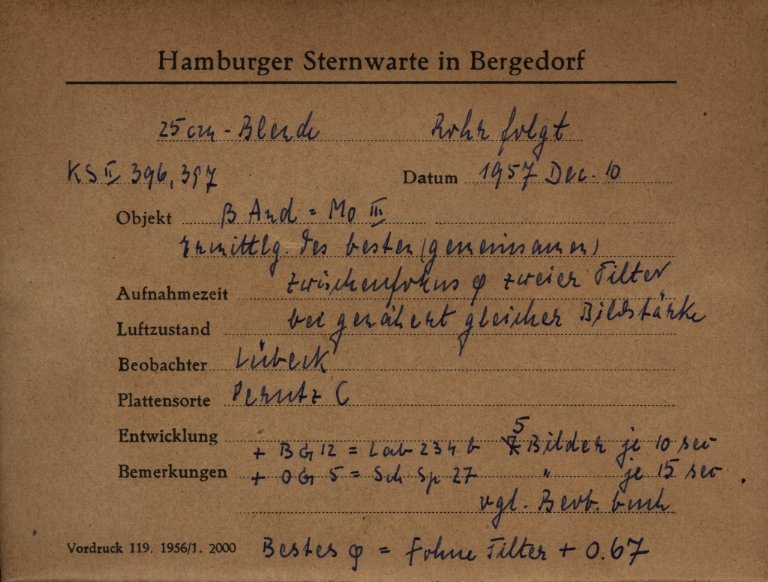 Hamburger Sternwarte in Bergedorf
25cm-Blende Rohr folgt
KS II 396, 397 Datum 1957 Dec. 10
Objekt β And = Mo III
Ermittlg. des besten (gemeinsamen)
Aufnahmezeit Zwischenfokus φ zweier Filter
Luftzustand bei genähert gleicher Bildstärke
Beobachter Lübeck
Plattensorte Perutz C
Entwicklung
+ BG 12 = Lab 234 b 5 Bilder je 10 sec
Bemerkungen + OG 5 = Sch Sp 27 " je 15 sec
vgl. Beob. buch
Vordruck 119. 1956/1. 2000 Bestes φ = Fohne Filter + 0.67